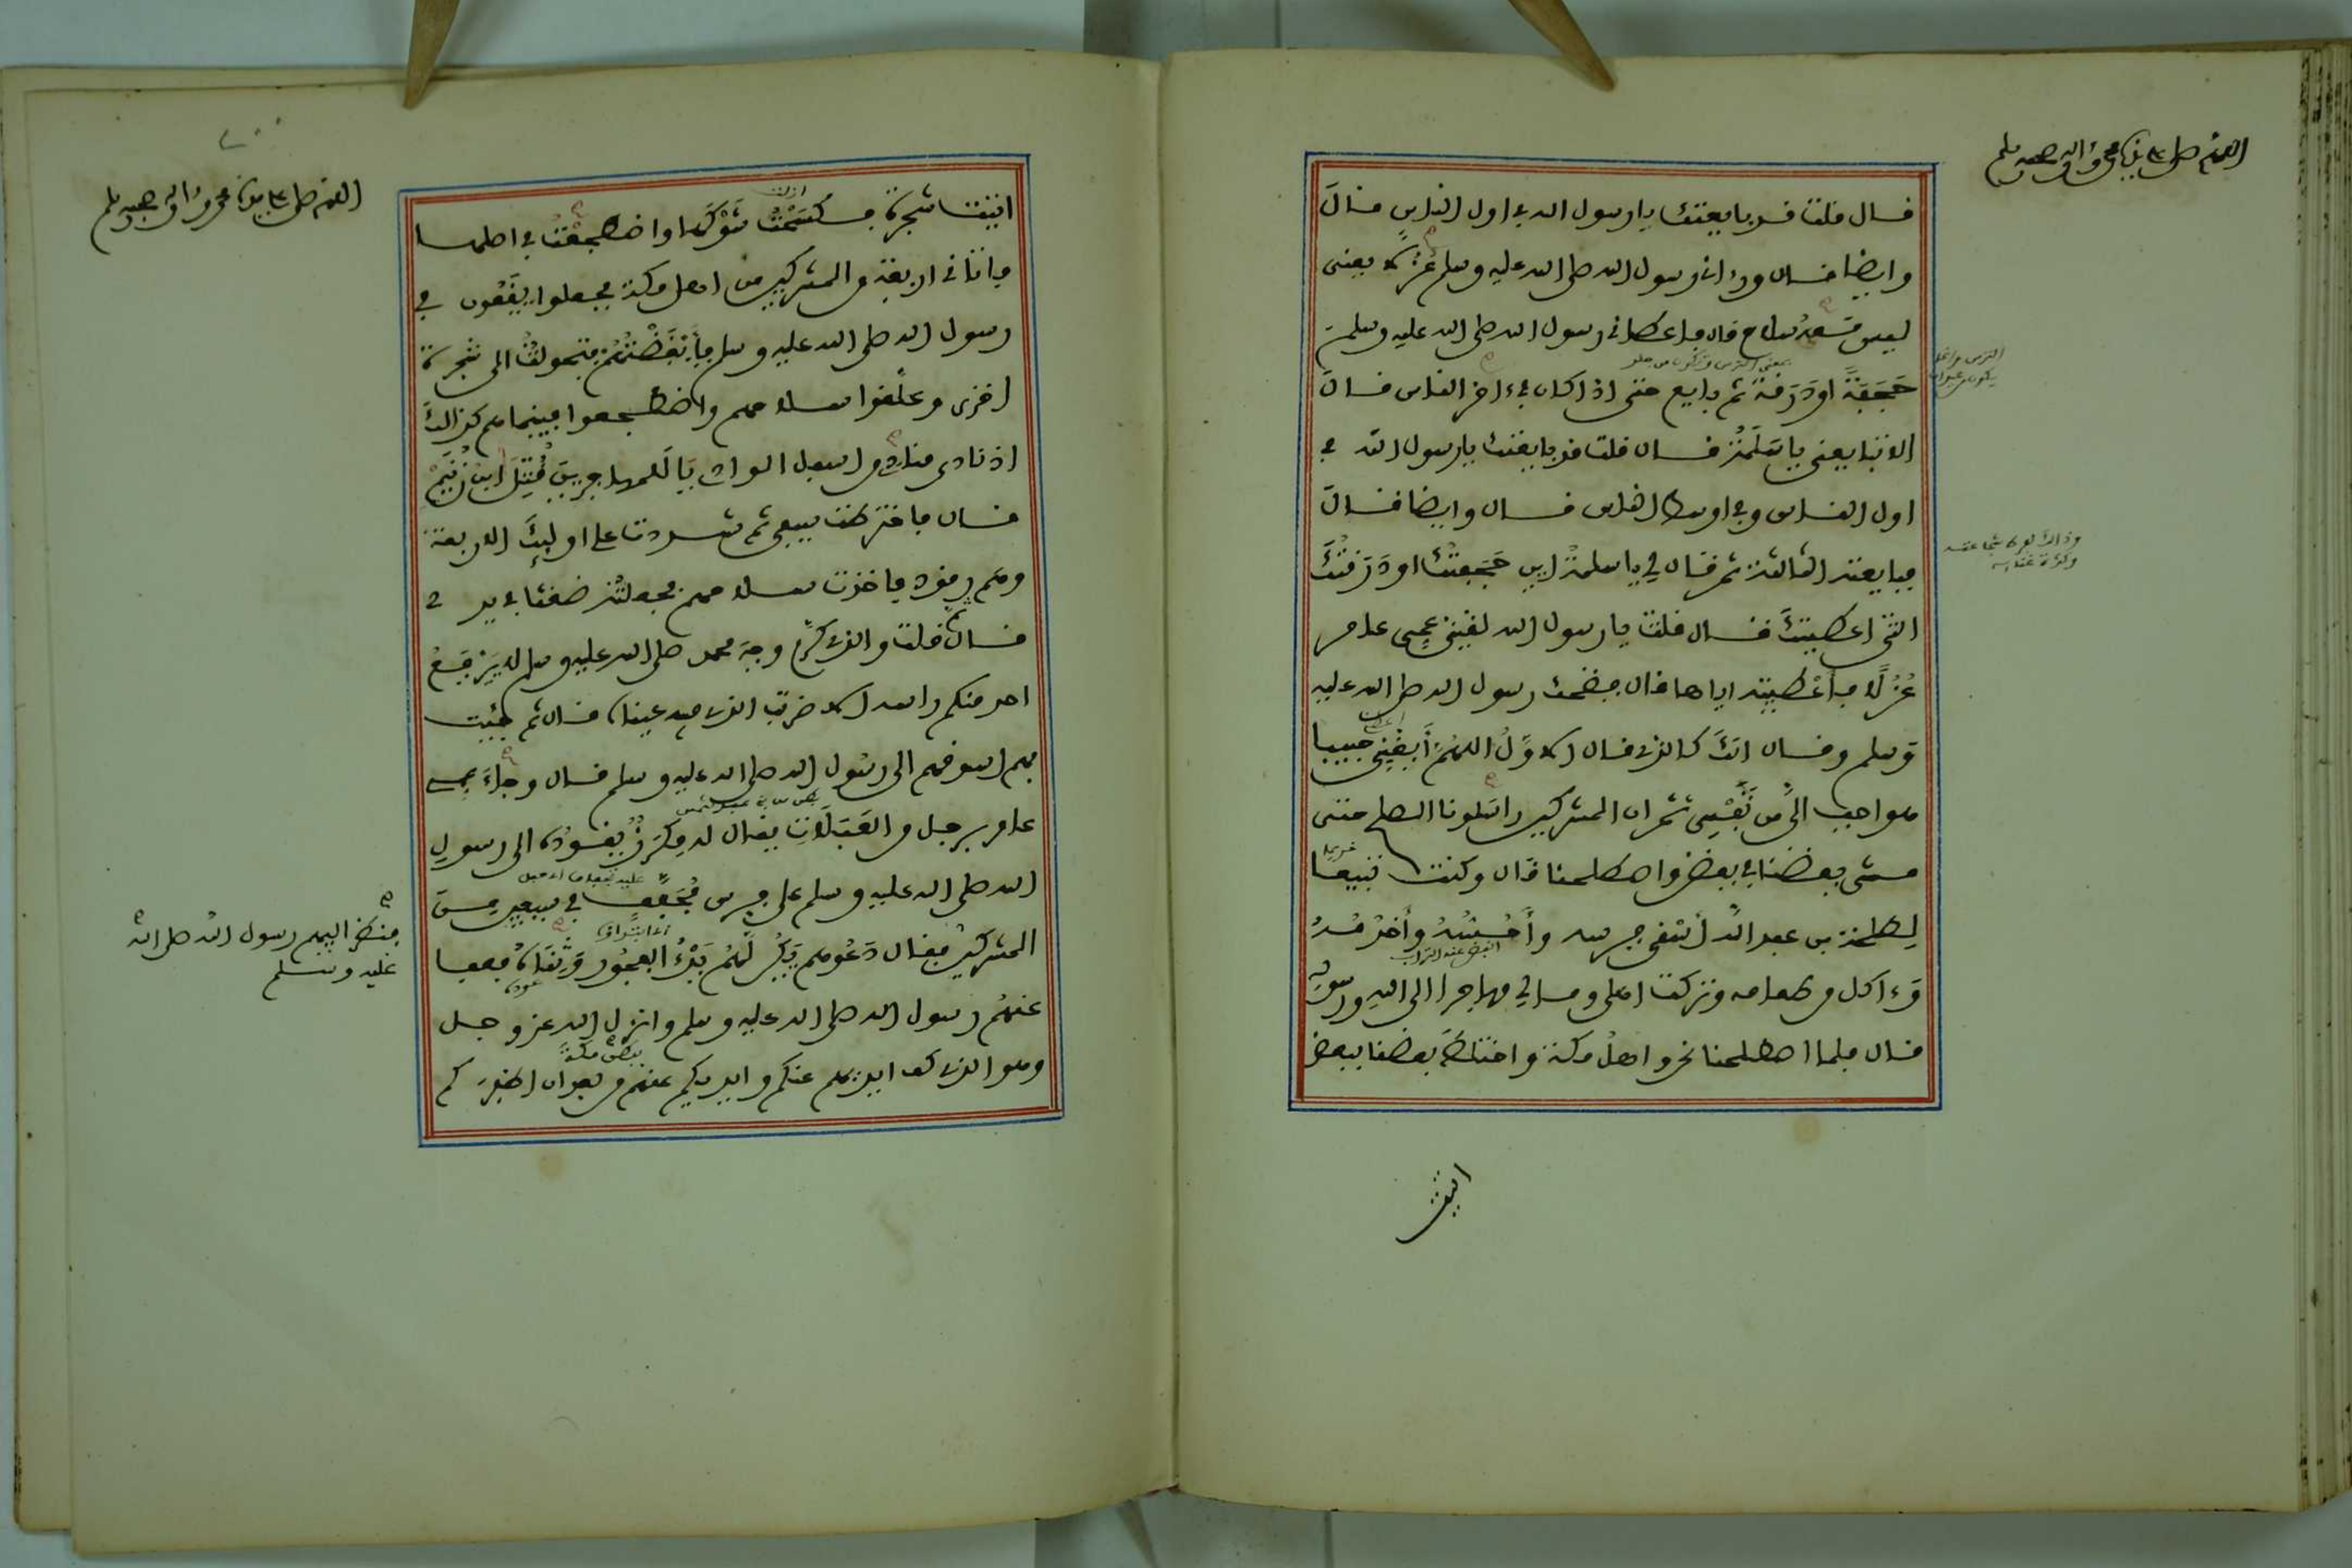 اللهم صل على سيدنا محمد وءاله وصحبه وسلم
قال قلت قد بايعتك يا رسول الله في اول الناس قال
وايضا قال ورءاني رسول الله صلى الله عليه وسلم عزلا يعني
ليس معه سلاح قال فاعطاني رسول الله صلى الله عليه وسلم
حَجَفَةً او دَرَقة ثم بايع حتى اذا كان في ءاخر الناس قال
الا تبايعني يا سلمة قال قلت قد بايعتك يا رسول الله في
اول الناس وفي اوسط الناس قال وايضا قال
فبايعته الثالثة ثم قال لي يا سلمة اين حَجَفتُك او دَرَقتُك
التي اعطيتك قال قلت يا رسول الله لقيني عمي عامر
عُزُلًا فأعطيته اياها قال فضحك رسول الله صلى الله عليه
وسلم وقال انك كالذي قال الاوّلُ اللهمّ أبغِني حبيبا
هو احب اليّ من نَّفْسِي ثم ان المشركين راسلونا الصلح حتى
مشى بعضنا في بعض واصطلحنا قال وكنت تبيعا
لِطلحة بن عبيد الله أسْقي فرسه وأحُسُّهُ وأخْدُمُهُ
وءاكل من طعامه وتركت اهلي ومالي مهاجرا الى اللهِ ورسولِهِ
قال فلما اصطلحنا نحن واهلُ مكة واختلطَ بعضنا ببعض
اتيت
اللهم صل على سيدنا محمد وءاله وصحبه وسلم
اتيت شجرة فكسَحْتُ شَوْكَها واضطجعْتُ في اصلها
فاتاني اربعة من المشركين من اهل مكة فجعلوا يَقَعُون في
رسول الله صلى الله عليه وسلم فأبْغَضْتُهُمْ فتحولتُ الى شجرة
اخرى وعلّقوا سلاحهم واضطجعوا فبينما هم كذالك
اذ نادى منادٍ من اسفل الوادي يَا لَلمهاجرين قُتِلَ ابن زُنَيْم
قال فاخترطت سيفي ثم شددت على اولئكَ الاربعة
وهم رقود فاخذت سلاحهم فجعلته ضغثا في يدي
قال ثم قلت والذي كرّم وجهَ محمد صلى الله عليه وسلم لا يَرْفَعُ
احد منكم راسه الا ضربت الذي فيه عيناه قال ثم جئت
بهم اسوقهم الى رسول الله صلى الله عليه وسلم قال وجاءَ عمي
عامر برجل من العَبَلاتِ يقال له مِكْرَزٌ يقودُه الى رسول
الله صلى الله عليه وسلم على فرس مُجَفَّف في سبعين من
المشركين فقال دَعُوهم يَكُنْ لَّهُمْ بَدْءُ الفجُور وَثِنَاهُ فعفا
فنظر اليهم رسول الله صلى الله
عليه وسلم
عنهمُ رسول الله صلى الله عليه وسلم وانزل الله عز وجل
وهو الذي كف ايديهم عنكم وايديكم عنهم من بعد ان اظفركم
ببطن مكة